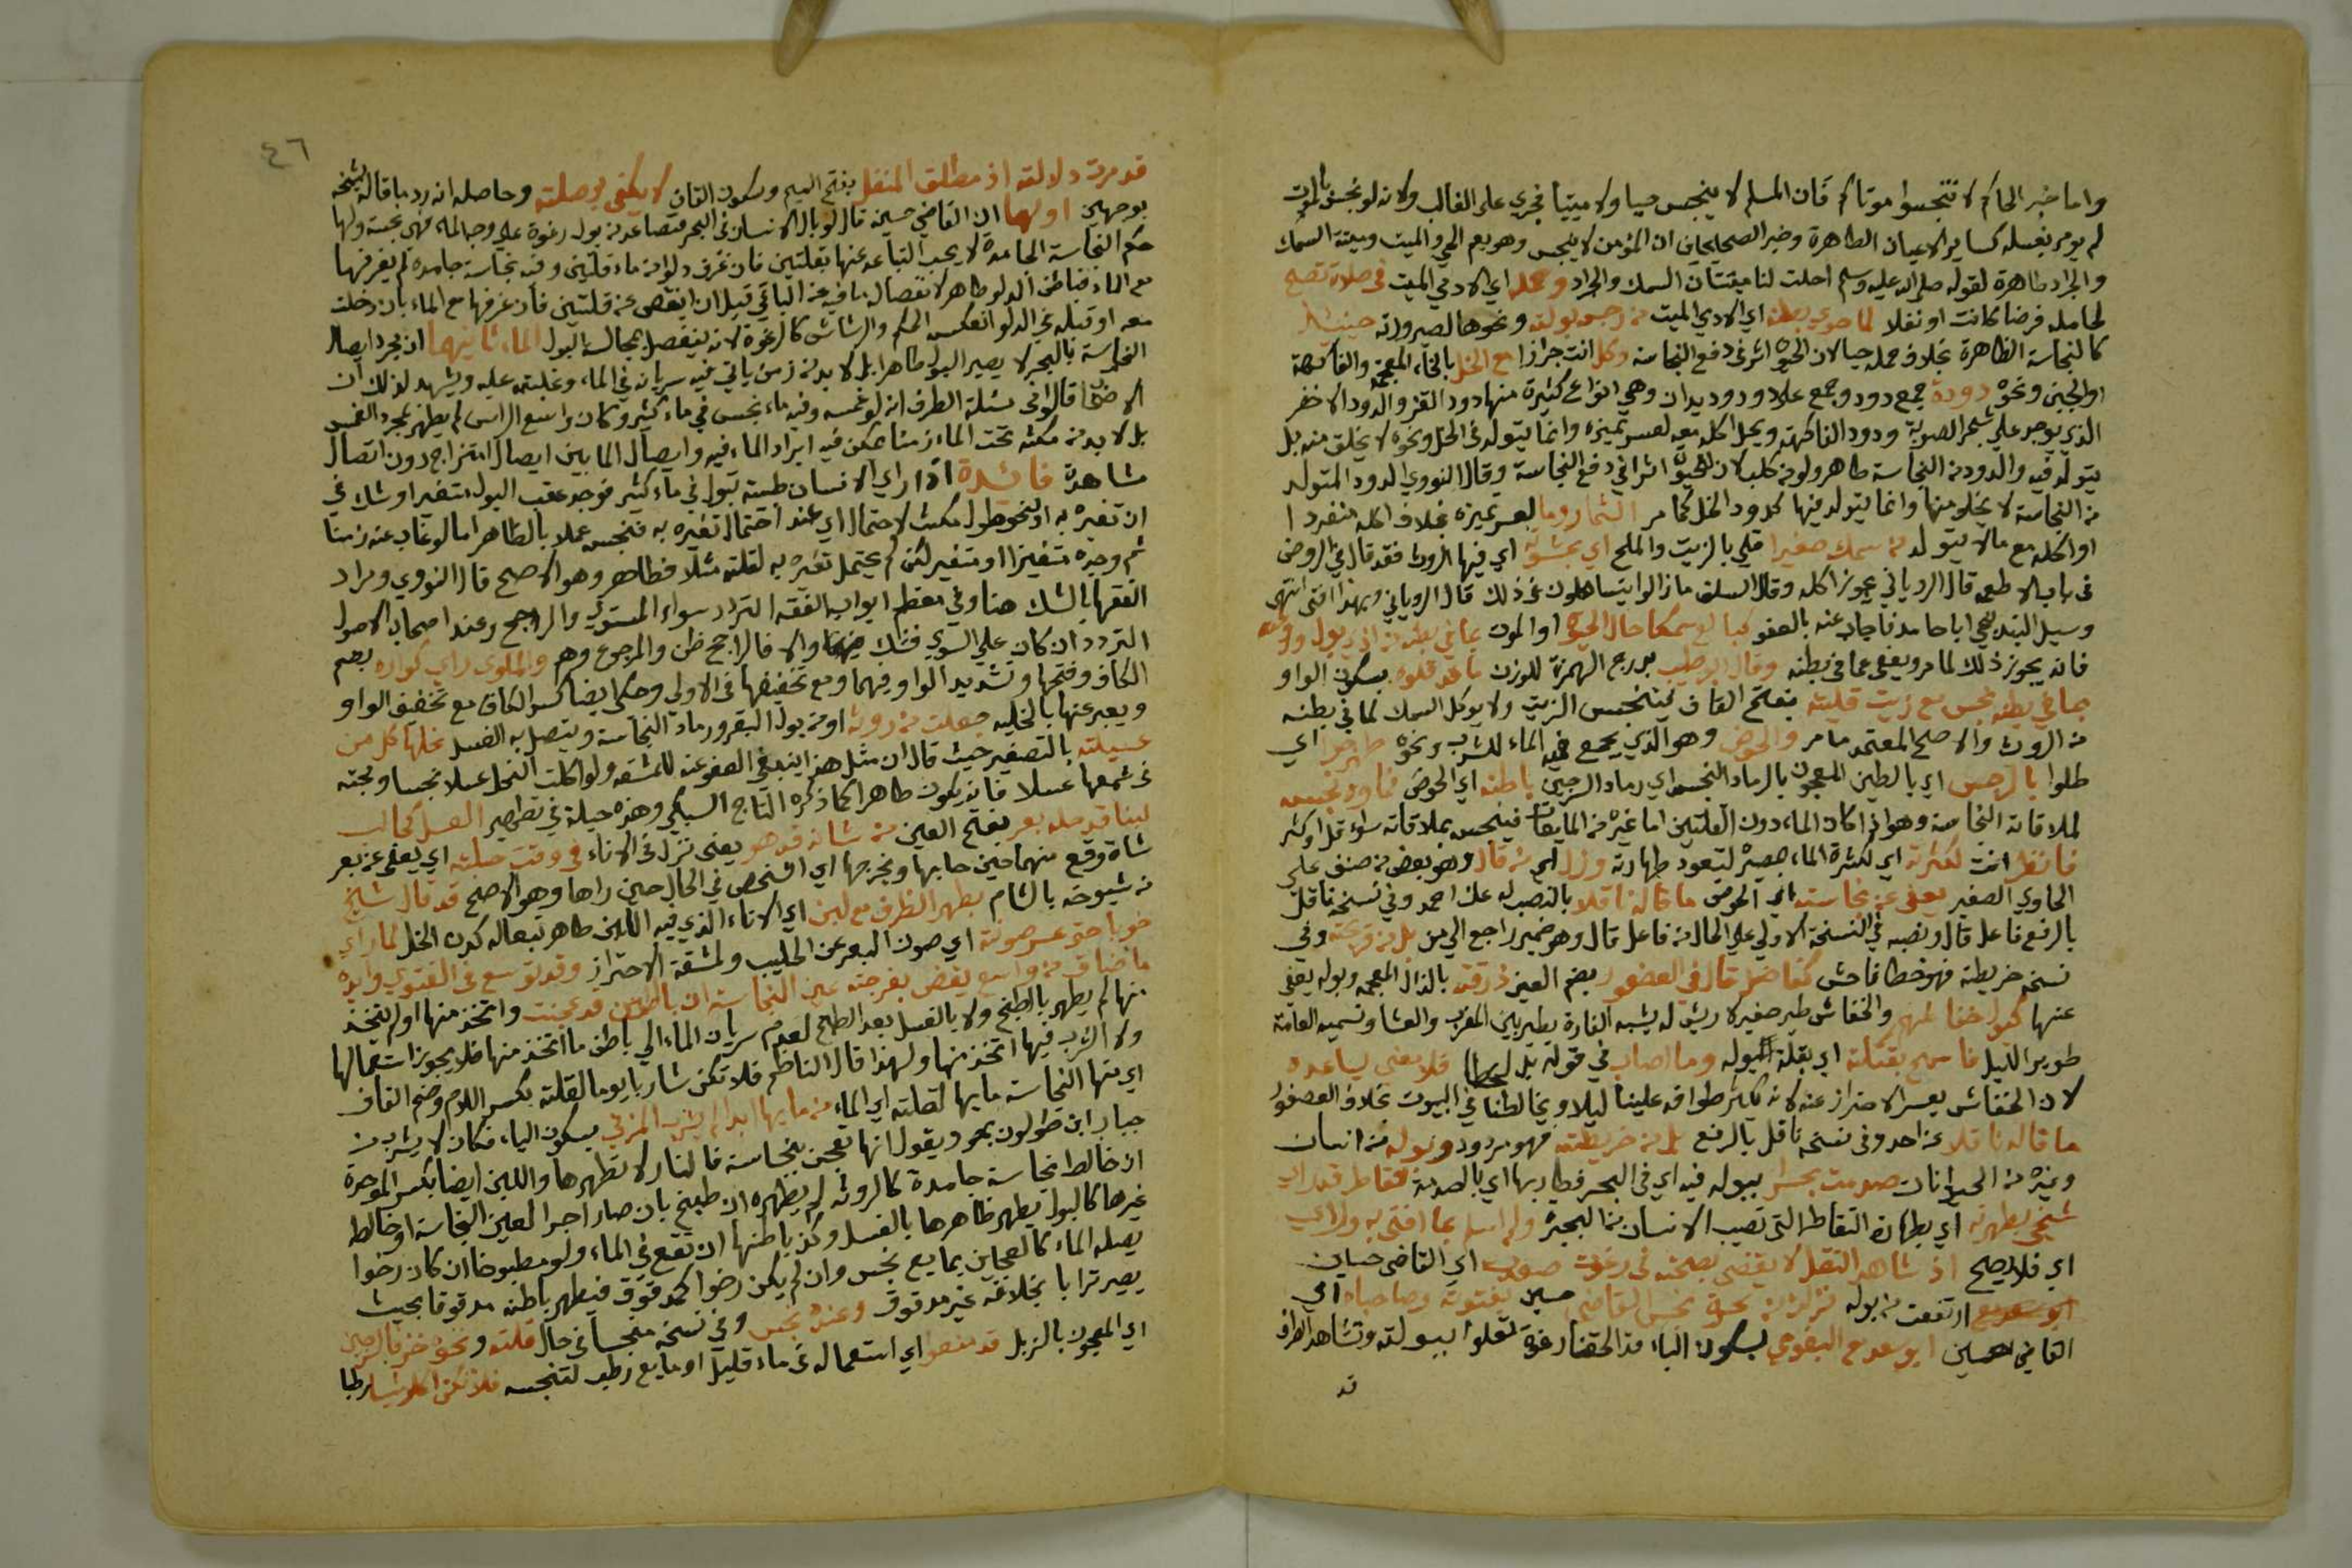 واما خبر الحاكم لا تنجسوا موتاكم فان المسلم لا ينجس حيا ولا ميتا فجري على الغالب ولانه لو نجس بالموت
لم يومر بغسله كساير الاعيان الطاهرة وخبر الصحيحين ان المؤمن لا ينجس وهو يعم الحي والميت وميتة السمك
والجراد طاهرة لقوله صلى الله عليه وسلم احلت لنا ميتتان السمك والجراد وحمله اي الادمي الميت في صلاة تصح
لحامله فرضا كانت او نفلا لما حوي بطنه اي الادمي الميت من رجس بولته ونحوها لصيرورته حينئذ
كالنجاسة الظاهرة بخلاف حمله حيا لان للحيوة اثر في دفع النجاسة وكل انت جوازا مع الخل بالخاء المعجمة والفاكهة
او الجبن ونحوه دودة جمع دود وجمع علا ودود ديدان وهي انواع كثيرة منها دود القز والدود الاخضر
الذي يوجد علي شجر الصنوبر ودود الفاكهة ويحل اكله معه لعسر تميزه وانما يتولد في الخل ونحوه لا يخلق منه بل
يتولد فيه والدود من النجاسة طاهر ولو من كلب لان للحيوة اثرا في دفع النجاسة وقال النووي الدود المتولد
من النجاسة لا يخلق منها وانما يتولد فيها كدود الخل كما مر الثمار وما لعسر تميزه بخلاف اكله منفردا
او اكله مع ما لا يتولد من سمك صغيرا قلي بالزيت والملح اي بحشوته اي فيها الروث فقد قال في الروض
في باب الاطعمة قال الروياني يجوز اكله وقال السلف ما زالوا يتساهلون في ذلك قال الروياني وبهذا افتي انتهى
وسيل البند نيجي ابا حامد فاجاب عنه بالعفو كبالع سمكا حال الحيوة او الموت بما في بطنه من اذي بول وروث
فانه يجوز ذلك لما مر ويعفي عما في بطنه وقال ابو طيب بدرج الهمزة للوزن ما قد قلوه بسكون الواو
بما في بطنه نجس مع زيت قليته بفتح القاف فيتنجس الزيت ولا يوكل السمك لما في بطنه
من الروث والاصح المعتمد ما مر والحوض وهو الذي يجمع فيه الماء للشرب ونحوه طهروا اي
طلوا بالرجس اي بالطين المعجون بالرماد النجس اي رماد السرجين باطنه اي الحوض فما ورد نجسه
لملاقاته النجاسة وهو اذا كان الماء دون القلتين اما غيره من المايعات فينجس بملاقاته سواء قل او كثر
فانظر انت لكثرته اي لكثرة الماء بصيره لتعود طهارته وزل اي من قال وهو بعض من صنف علي
الحاوي الصغير يعفي عن نجاسته اي الحوض ما قاله ناقلا بالنصب له عن احمد وفي نسخة ناقل
بالرفع فاعل قال ونصبه في النسخة الاولي علي الحال من فاعل قال وهو ضمير راجع الي من بل من قريحته وفي
نسخة خريطته فهو خطا فاحش كفاضل قال في العصفور بضم العين ذرقته بالذال المعجمة وبوله يعفي
عنها كبول خفا لمهر والخفاش طير صغير لا ريش له يشبه الفارة يطير بين المغرب والعشا وتسميه العامة
طوير الليل فاسمح بقتلته اي بقلة البوله وما اصاب في قوله بل لخطا فلا معنى يساعده
لان الخفاش يعسر الاحتراز عنه لانه يكثر طوافه علينا ليلا ويخالطنا في البيوت بخلاف العصفور
ما قاله ناقلا عن احد وفي نسخة ناقل بالرفع بل من خريطته فهو مردود وبوله من انسان
وغيره من الحيوانات صدمت بحرا ببوله فيه اي في البحر فطار بها اي بالصدمة فقاطر قد راي
شيخي بطهرته اي بطهارة التقاطر التي تصيب الانسان من البحيرة ولم اسلم بما افتي به ولراي
اي فلا يصح اذ شاهد النقل لا يقضي بصحته في رغوت صورت اي القاضي حسين
ارتفعت من بوله نزلت من بحره نجس القاضي حسين بفتوته وصاحباه اي
القاضي حسين ابو سعد مع البغوي بسكون الياء قد الحقنا رغوة تعلوا ببولته وتشاهد الطرف
قد
٤٦
قد مرت دلالته اذ مطلق النقل بفتح الميم وسكون القاف لا يكفي بوصلته وحاصله انه رد ما قاله شيخه
بوجهين اولهما ان القاضي حسين قال لو بال الانسان في البحر فتصاعد من بوله رغوة علي وجه الماء فهي نجسة ولها
حكم النجاسة الجامدة لا يجب التباعد عنها بقلتين فان غرف دلوا من ماء قلتين وفيه نجاسة جامدة لم يغرفها
مع الماء فباطن الدلو طاهر لانفصال ما فيه عن الباقي قبل ان ينقص عن قلتين فان غرفها مع الماء بان دخلت
معه او قبله في الدلو انعكس الحكم والرشاش كالرغوة لانه ينفصل بمجالسة البول الماء ثانيهما ان مجرد ايصال
النجاسة بالبحر لا يصير البول طاهرا بل لا بد من زمن ياتي فيه سريانه في الماء وغلبته عليه ويشهد لذلك ان
الاصحاب قالوا في مسئلة الظرف انه لو غمسه وفيه ماء نجس في ماء كثير وكان واسع الراس لم يطهر بمجرد الغمس
بل لا بد من مكثه تحت الماء زمنا يمكن فيه ايراد الماء فيه وايصال المابين ايصال امتزاج دون اتصال
مشاهدة فائدة اذا راي الانسان ظبية تبول في ماء كثير فوجد عقب البول متغيرا وشك في
ان تغيره به او بنحو طول مكث لاحتمال اي عند احتمال تغيره به فنجس عملا بالظاهر اما لو غاب عنه زمنا
ثم وجده متغيرا او متغير لكن لم يحتمل تغيره به لقلته مثلا فطاهر وهو الاصح قال النووي ومراد
الفقها بالشك هنا وفي معظم ابواب الفقه التردد سواء المستوي والراجح وعند اصحاب الاصول
التردد ان كان علي السوي فشك والا فالراجح ظن والمرجوح وهم والملوي راي كواره بضم
الكاف وفتحها وتشديد الواو فيهما ومع تخفيفها في الاولي وحكي ايضا كسر الكاف مع تخفيف الواو
ويعبر عنها بالخليه جعلت من روث او من بول البقر ورماد النجاسة ويتصل به العسل نحلها كل من
عسيلته بالتصغير حيث قال ان مثل هذا ينبغي العفو عنه للمشقة ولو اكلت النحل عسلا نجسا ومجته
في شمعها عسلا فانه يكون طاهرا كما ذكره التاج السبكي وهذه حيلة في تطهير العسل كحالب
لبنا قد حله بعر بفتح العين من شانه قد هو يعني نزل في الاناء في وقت حلبته اي يعفي عن بعر
شاة وقع منها حين حلبها ونخرجها اي افتحص في الحال حين راها وهو الاصح قد قال شيخ
من شيوخه بالشام يطهر الظرف مع لبن اي الاناء الذي فيه اللبن طاهر تبعا له كدن الخل لما راي
خوبا حق عسر صونته اي صون البعر عن الحليب ولمشقة الاحتراز وقد توسع في الفتوي وايده
ما ضاق من واسع يقضي بفرجته عين النجاسة ان بالطين قد عجنت واتخذ منها او لم يتخذ
منها لم يطهر بالطبخ ولا بالغسل بعد الطبخ لعدم سريان الماء الي باطن ما اتخذ منها فلا يجوز استعمالها
ولا الشرب فيها اتخذ منها ولهذا قال الناظم فلا تكن شاربا يوما لقلته بكسر اللام وضم القاف
اي منها النجاسة مابها لقلته اي الماء من مايها ابدا لم يشرب المزني بسكون الياء فكان لا يشرب من
جباب ابن طولون بمصر ويقول انها تعجن بنجاسة فالنار لا تطهرها واللبن ايضا بكسر الموحدة
ان خالط نجاسة جامدة كالروث لم يطهره ان طبخ بان صار اجرا لعين النجاسة او خالط
غيرها كالبول يطهر ظاهرها بالغسل وكذا باطنها ان نقع في الماء ولو مطبوخا ان كان رخوا
يصله الماء كالعجين بمايع نجس وان لم يكن رخوا كمدقوق فيطهر باطنه مدقوقا بحيث
يصير ترابا بخلافه غير مدقوق وعنده نجس وفي نسخة منجسا في حال قلته ونحو خبز بالسرجين
اي المعجون بالزبل قد منعوا اي استعماله في ماء قليل او مايع رطب لتنجسه فلا تكن اكلا شيا رطبا